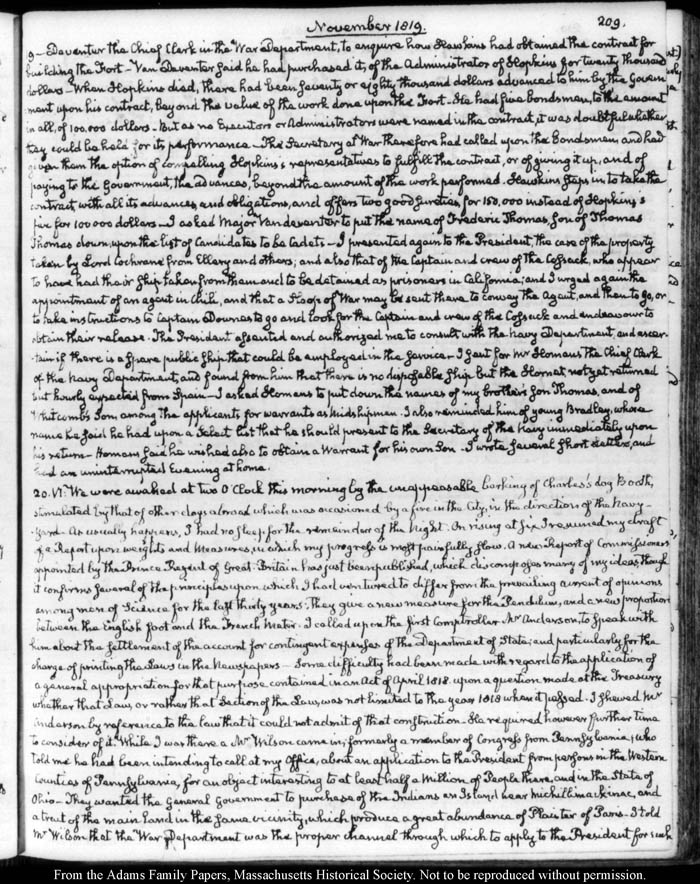 November 1819.
209.
9 – Deventer the Chief Clerk in the War Department, to enquire how Hawkins had obtained the contract for
building the Fort – Van Deventer said he had purchased it, of the Administrator of Hopkins for twenty thousand
dollars – When Hopkins died, there had been seventy or eighty thousand dollars advanced to him by the Govern
ment upon his contract, beyond the value of the work done upon the Fort – He had five bondsmen, to the amount
in all, of 100,000 dollars – But as no Executors or Administrators were named in the contract, it was doubtful whether
they could be held for its performance – The Secretary of War therefore had called upon the Bondsmen and had
given them the option of compelling Hopkins's representatives to fulfill the contract, or of giving it up, and of
paying to the Government, the advances, beyond the amount of the work performed. Hawkins steps in to take the
contract with all its advances and obligations, and offers two good sureties, for 150,000 instead of Hopkins's
five for 100000 dollars – I asked Major Vandeventer to put the name of Frederic Thomas, son of Thomas
Thomas down, upon the list of Candidates to be Cadets – I presented again to the President, the case of the property
taken by Lord Cochrane from Ellery and others; and also that of the Captain and crew of the Cossack, who appear
to have had their Ship taken from them and to be detained as prisoners in California; and I urged again the
appointment of an agent in Chili, and that a Sloop of War may be sent there, to convey the Agent, and then to go, or
to take instructions to Captain Downes to go and look for the Captain and crew of the Cossack and endeavour to
obtain their release. The President assented and authorized me to consult with the Navy Department, and ascer-
tain if there is a spare public ship that could be employed in the service – I sent for Mr Homans the Chief Clerk
of the Navy Department, and found from him that there is no disposable ship but the Hornet, not yet returned
but hourly expected from Spain – I asked Homans to put down the names of my brother's son Thomas, and of
Whitcomb's Son, among the applicants for warrants as Midshipmen. I also reminded him of young Bradley, whose
name he said he had upon a select list that he should present to the Secretary of the Navy immediately upon
his return – Homans said he wished also to obtain a Warrant for his own Son – I wrote several short letters, and
had an uninterrupted evening at home.
20. VI: We were awaked at two O'Clock this morning by the unappeasable barking of Charles's dog Booth,
stimulated by that of other dogs abroad which was occasioned by a fire in the City, in the direction of the Navy-
Yard – As usually happens, I had no sleep for the remainder of the Night. On rising at six I resumed my draft
of a Report upon weights and Measures, in which my progress is most painfully slow. A new Report of Commissioners
appointed by the Prince Regent of Great-Britain has just been published, which discomposes many of my ideas, though
it confirms several of the principles upon which I had ventured to differ from the prevailing current of opinions
among men of Science for the last thirty years. They give a new measure for the Pendulum, and a new proportion
between the English foot and the French Metre. I called upon the first Comptroller Mr Anderson, to speak with
him about the settlement of the account for contingent expenses of the Department of State; and particularly for the
charge of printing the Laws in the Newspapers – Some difficulty had been made with regard to the application of
a general appropriation for that purpose contained in an Act of April 1818 upon a question made at the Treasury
whether that Law, or rather that Section of the Law, was not limited to the year 1818 when it passed. I shewed Mr
Anderson by reference to the law that it could not admit of that construction – He required however further time
to consider of it. While I was there a Mr Wilson came in, formerly a member of Congress from Pennsylvania, who
told me he had been intending to call at my Office, about an application to the President from persons in the Western
Counties of Pennsylvania, for an object interesting to at least half a Million of People there, and in the State of
Ohio – They wanted the General Government to purchase of the Indians an Island near Michillimackinac, and
a tract of the main Land in the same vicinity, which produce a great abundance of Plaister of Paris – I told
Mr Wilson that the War Department was the proper channel through which to apply to the President for such
From the Adams Family Papers, Massachusetts Historical Society. Not to be reproduced without permission.